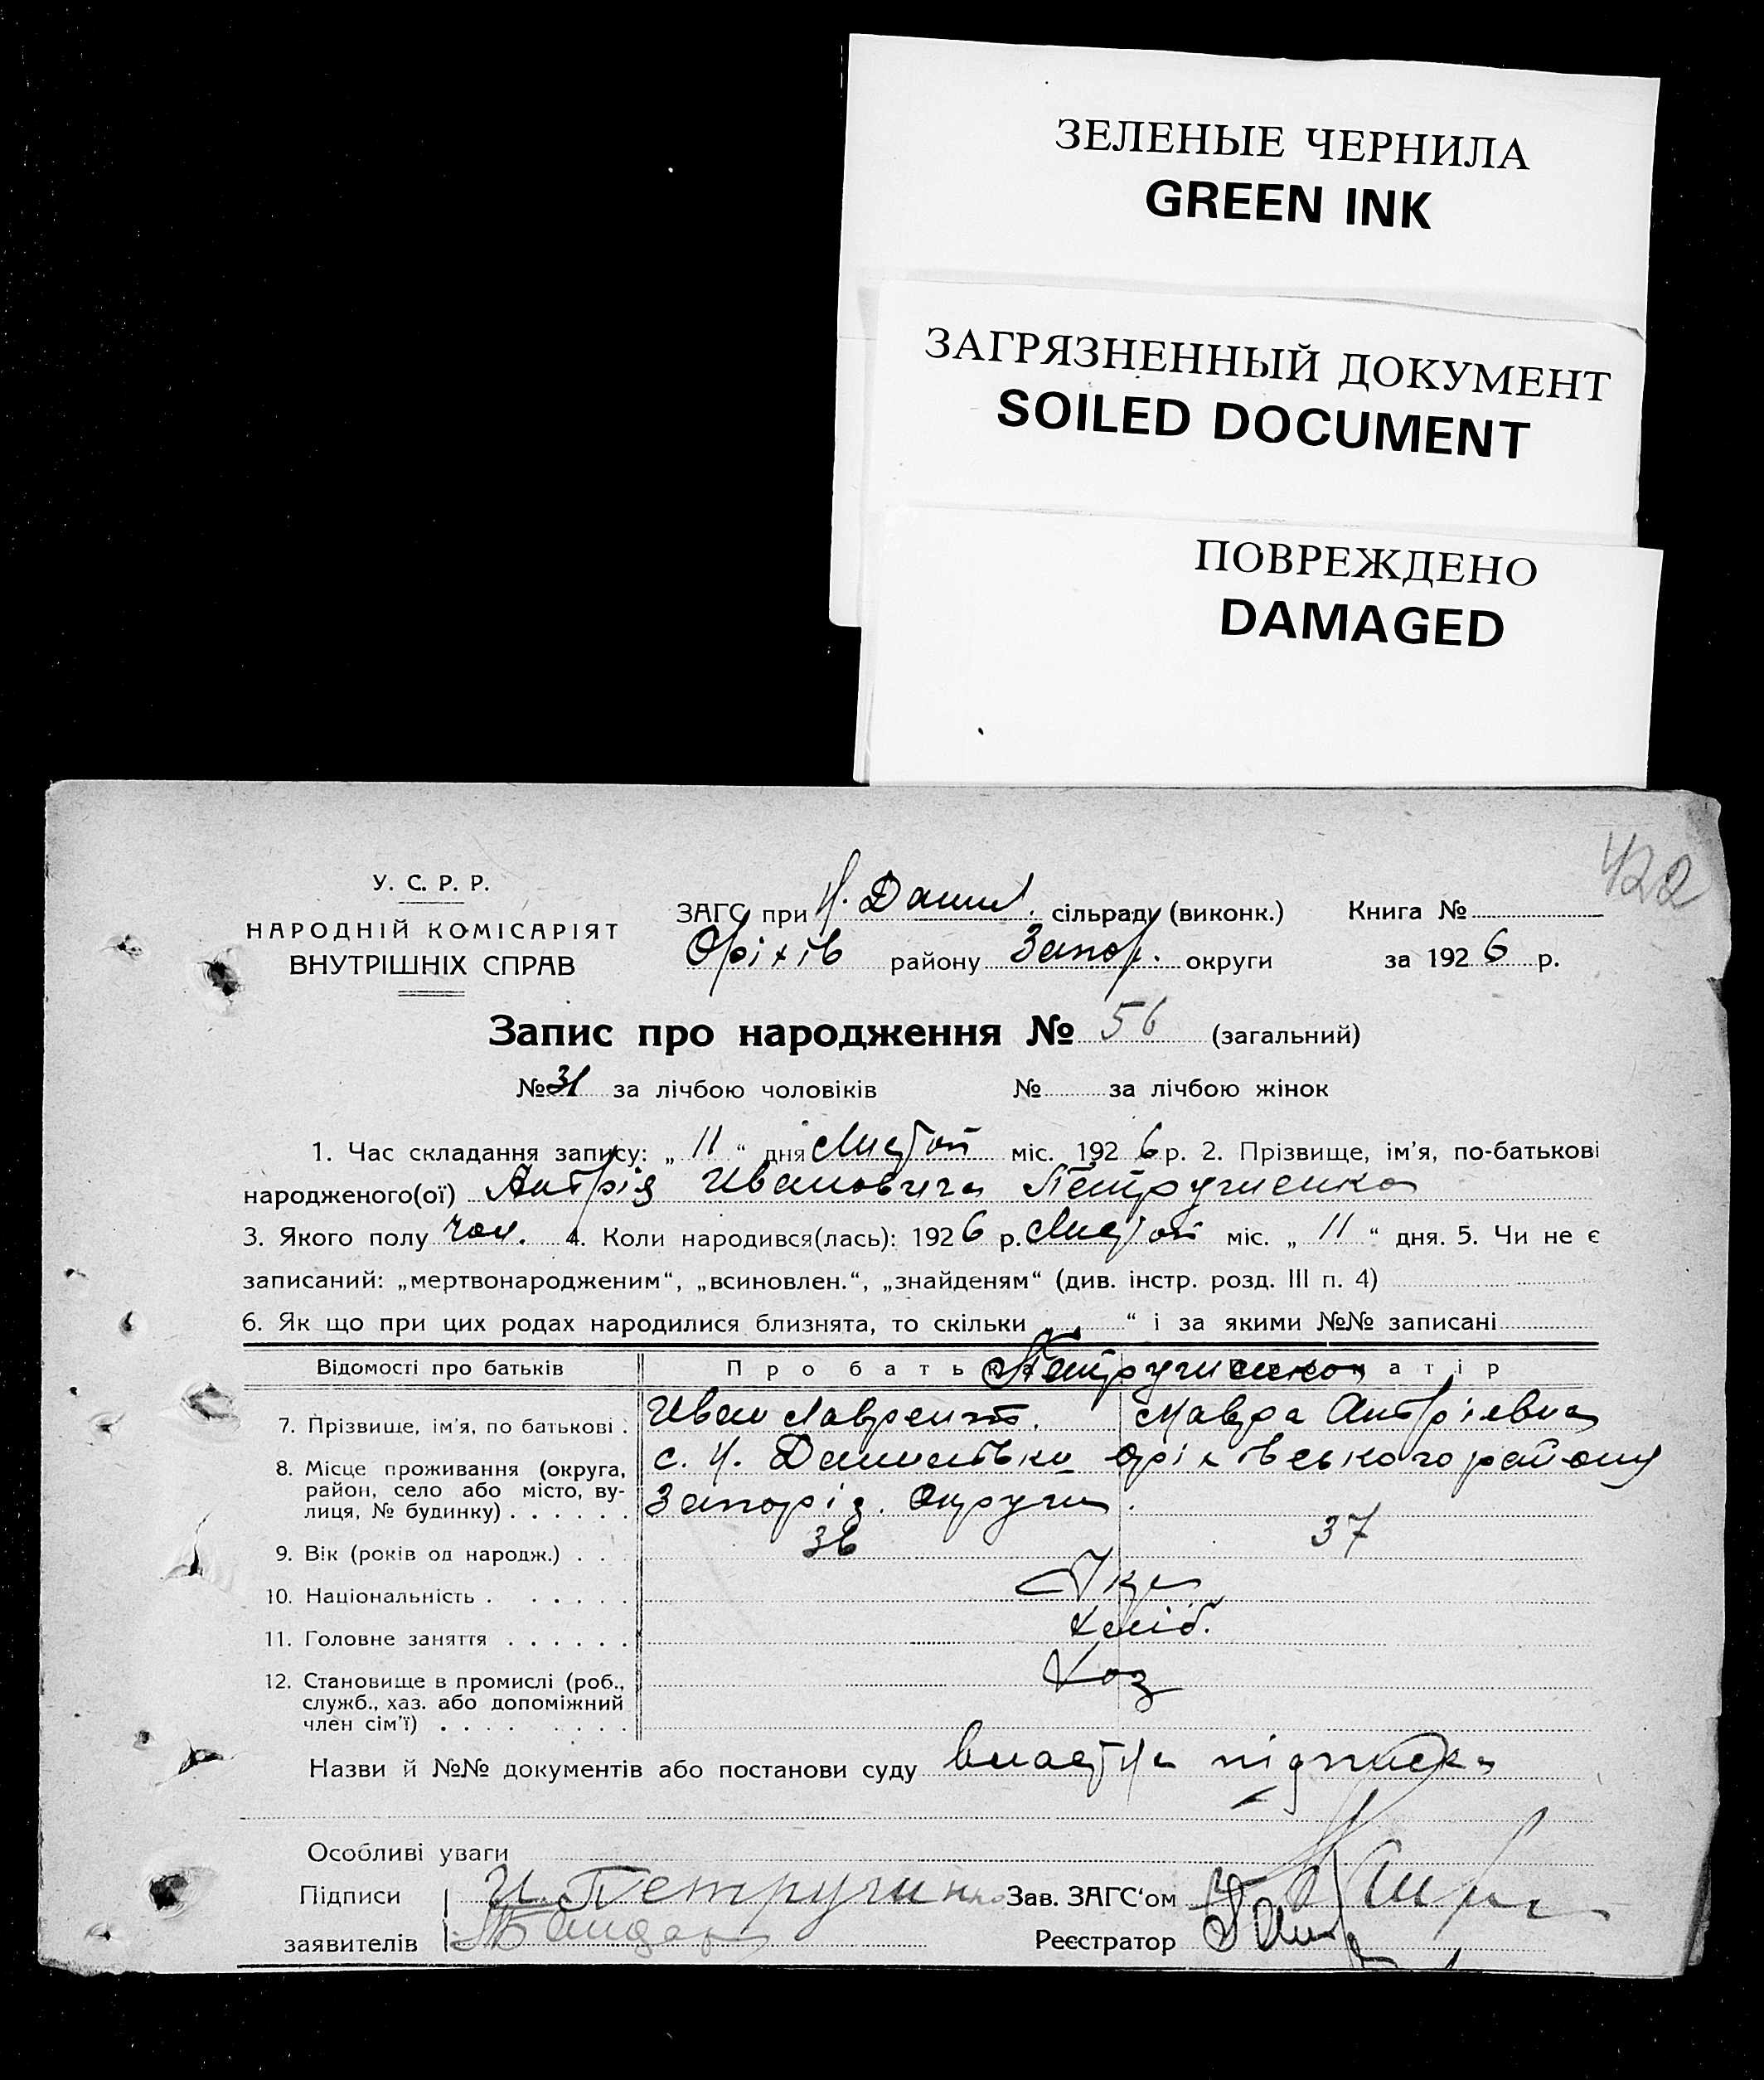 ЗЕЛЕНЫЕ ЧЕРНИЛА
GREEN INK
ЗАГРЯЗНЕННЫЙ ДОКУМЕНТ
SOILED DOCUMENT
ПОВРЕЖДЕНО
DAMAGED
422
У. С. Р. Р.
НАРОДНІЙ КОМІСАРІЯТ
ВНУТРІШНІХ СПРАВ
ЗАГС при Н. Данил. сільраду (виконк.) Книга №
Оріхів району Запор. округи за 1926 р.
Запис про народження № 56 (загальний)
№ 31 за лічбою чоловіків № за лічбою жінок
1. Час складання запису: „ 11 “ дня Листоп міс. 1926 р. 2. Прізвище, ім'я, по-батькові
народженого(ої) Ивановича Петрученко
3. Якого полу чол. 4. Коли народився(лась): 1926 р. Листоп міс. „ 11 “ дня. 5. Чи не є
записаний: „мертвонародженим“, „всиновлен.“, „знайденям“ (див. інстр. розд. III п. 4)
6. Як що при цих родах народилися близнята, то скільки „ “ і за якими №№ записані
Відомості про батьків Про батька Петрученко матір
7. Прізвище, ім'я, по батькові . Иван Лаврент. Мавра Андріевна
8. Місце проживання (округа, район, село або місто, вулиця, № будинку) . . . . . . с. Н. Данилівки Оріхівського району
Запоріз. Округи.
9. Вік (років од народж.) . . 36 37
10. Національність . . . . . . Укр
11. Головне заняття . . . . . . Хліб.
12. Становище в промислі (роб., служб., хаз. або допоміжний член сім'ї) . . . . . . . . Хоз
Назви й №№ документів або постанови суду власна підписка
Особливі уваги
Підписи И. Петручинко Зав. ЗАГС'ом
заявителів Реєстратор